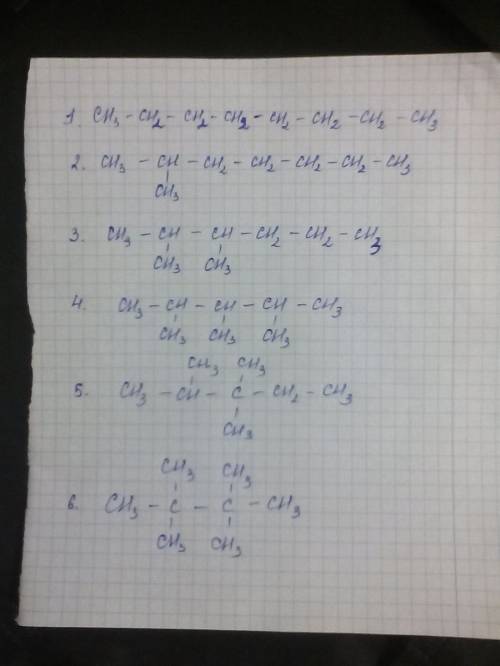 1. CH3 - CH2 - CH2 - CH2 - CH2 - CH2 - CH2 - CH3
2. CH3 - CH - CH2 - CH2 - CH2 - CH2 - CH3
CH3
3. CH3 - CH - CH - CH2 - CH2 - CH3
CH3 CH3
4. CH3 - CH - CH - CH - CH3
CH3 CH3 CH3
CH3 CH3
5. CH3 - CH - C - CH2 - CH3
CH3
CH3 CH3
6. CH3 - C - C - CH3
CH3 CH3